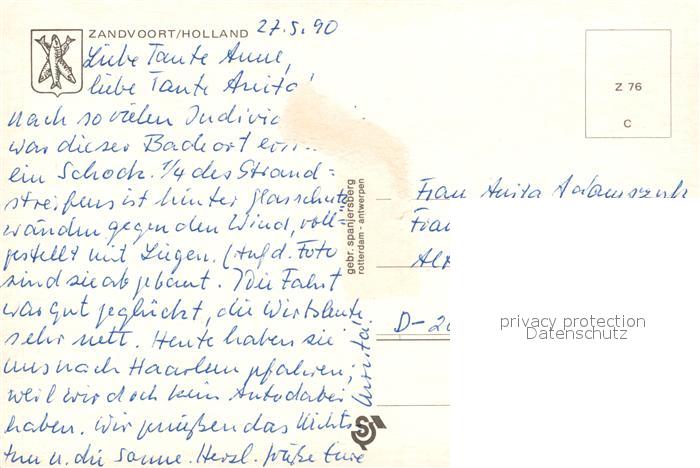 ZANDVOORT/HOLLAND
27.5.90
Liebe Tante Anne,
liebe Tante Anita!
nach so vielen
war dieser Badeort
ein Schock. 1/4 des Strand=
streifens ist hinter Glasschutz
wänden gegen den Wind, voll=
gestellt mit Liegen. (Auf d. Foto
sind sie abgebaut.) Die Fahrt
war gut geglückt, die Wirtsleute
sehr nett. Heute haben sie
uns nach Haarlem gefahren,
weil wir doch kein Auto dabei
haben. Wir genießen das Nichts-
tun u. die Sonne. Herzl. Grüße Eure
Z 76
C
gebr. spanjersberg
rotterdam - antwerpen
Frau Anita
D-
privacy protection
Datenschutz